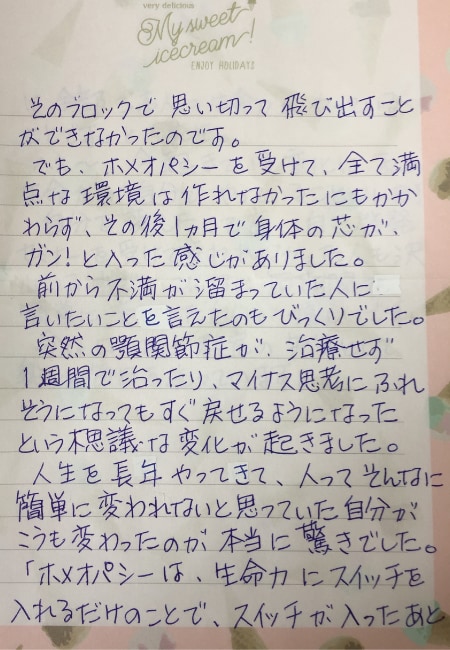 very delicious
My sweet
icecream!
ENJOY HOLIDAYS
そのブロックで思い切って飛び出すこと
ができなかったのです。
でも、ホメオパシーを受けて、全て満
点な環境は作れなかったにもかか
わらず、その後1ヵ月で身体の芯が、
ガン!と入った感じがありました。
前から不満が溜まっていた人に
言いたいことを言えたのもびっくりでした。
突然の顎関節症が、治療せず
1週間で治ったり、マイナス思考にふれ
そうになってもすぐ戻せるようになった
という不思議な変化が起きました。
人生を長年やってきて、人ってそんなに
簡単に変われないと思っていた自分が
こうも変わったのが本当に驚きでした。
「ホメオパシーは、生命力にスイッチを
入れるだけのことで、スイッチが入ったあと